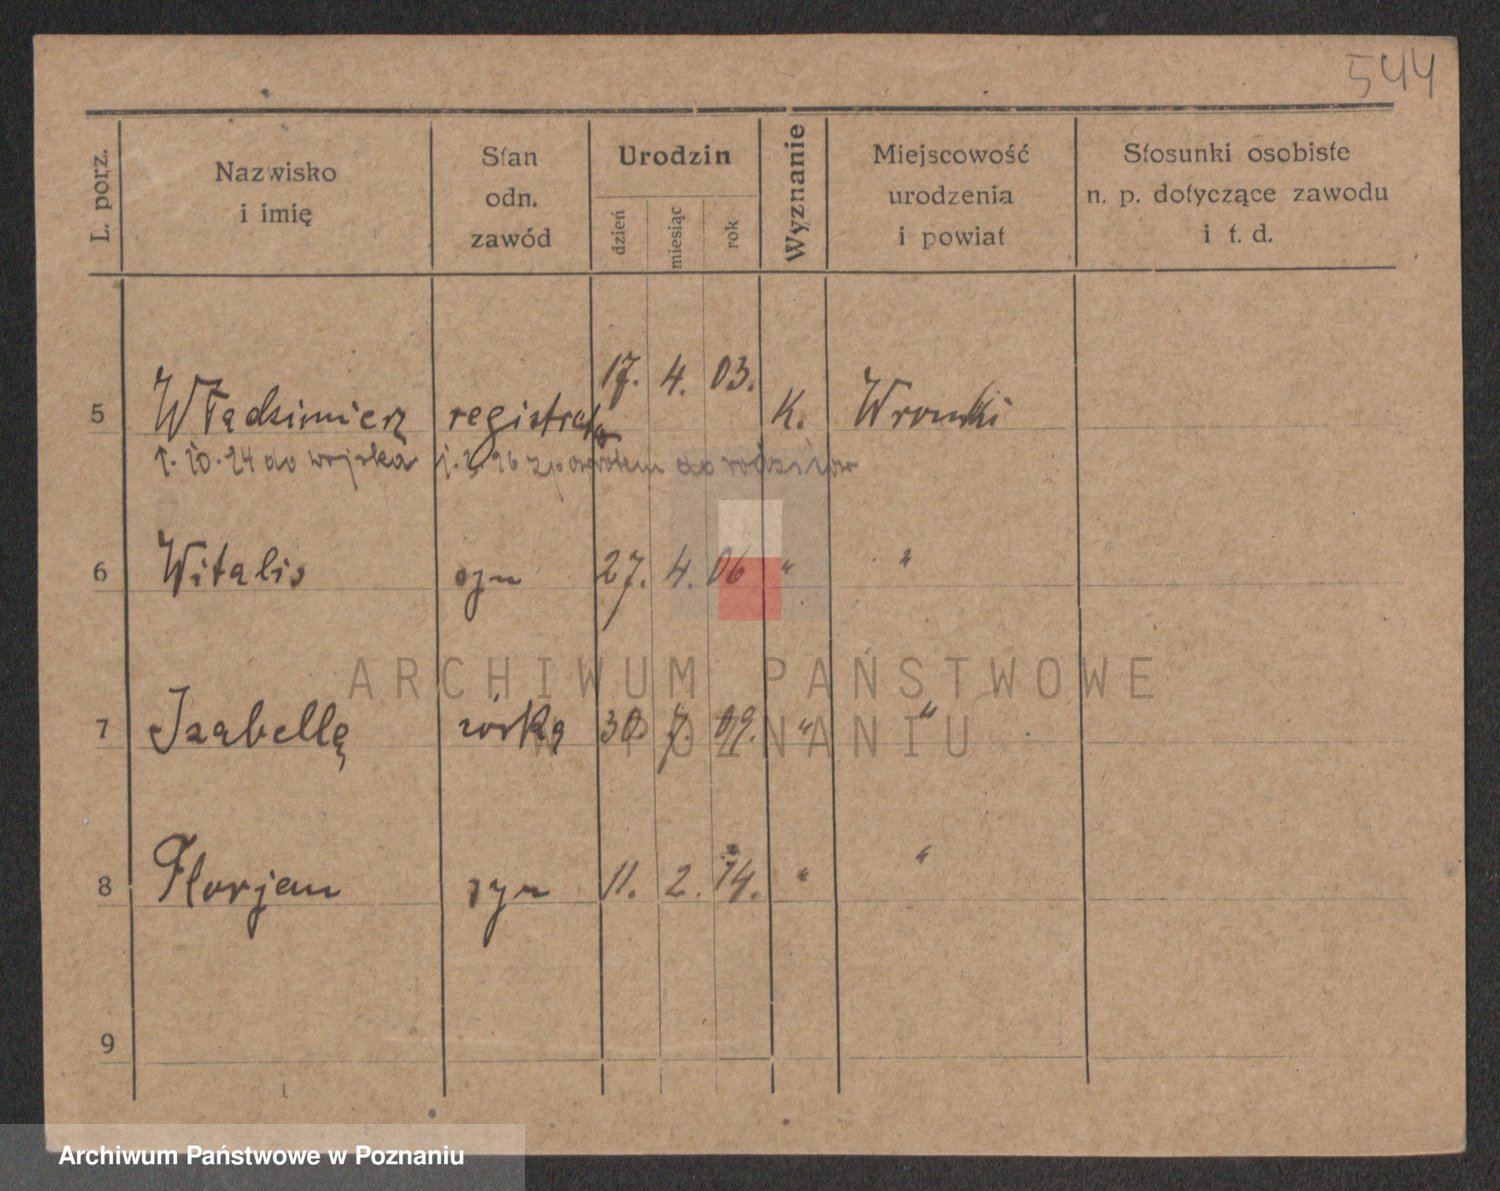 544
L. porz.
Nazwisko
i imię
Stan
odn.
zawód
Urodzin
dzień
miesiąc
rok
Wyznanie
Miejscowość
urodzenia
i powiat
Stosunki osobiste
n. p. dotyczące zawodu
i t. d.
5 Władzimierz registrator 17. 4. 03. K. Wronki
1. 10. 24 do wojska 26 z powrotem do rodziców
6 Witalis syn 27. 4. 06 " "
7 Izabella córka 30 7. 09. " "
8 Florjan syn 11. 2. 14. " "
9
ARCHIWUM PAŃSTWOWE
W POZNANIU
Archiwum Państwowe w Poznaniu